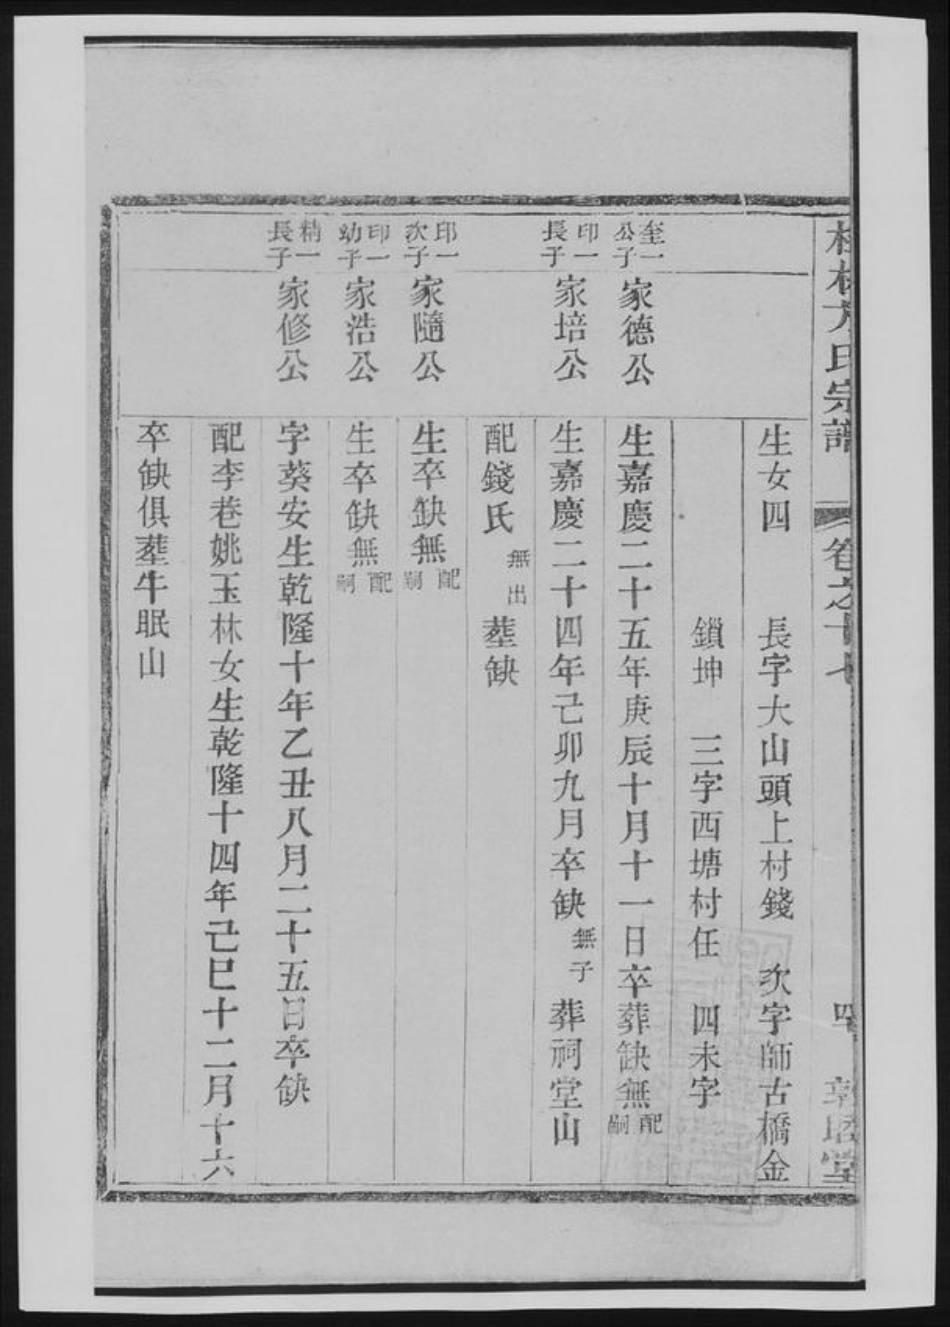 方氏宗譜 卷之十七 四
生女四 長字大山頭上村錢 次字師古橋金
鎖坤 三字西塘村任 四未字
奎一公子 家德公 生嘉慶二十五年庚辰十月十一日卒葬缺無配嗣
印一長子 家培公 生嘉慶二十四年己卯九月卒缺無子葬祠堂山
配錢氏無出塟缺
印一次子 家隨公 生卒缺無配嗣
印一幼子 家浩公 生卒缺無配嗣
精一長子 家修公 字葵安生乾隆十年乙丑八月二十五日卒缺
配李巷姚玉林女生乾隆十四年己巳十二月十六
卒缺俱塟牛眠山